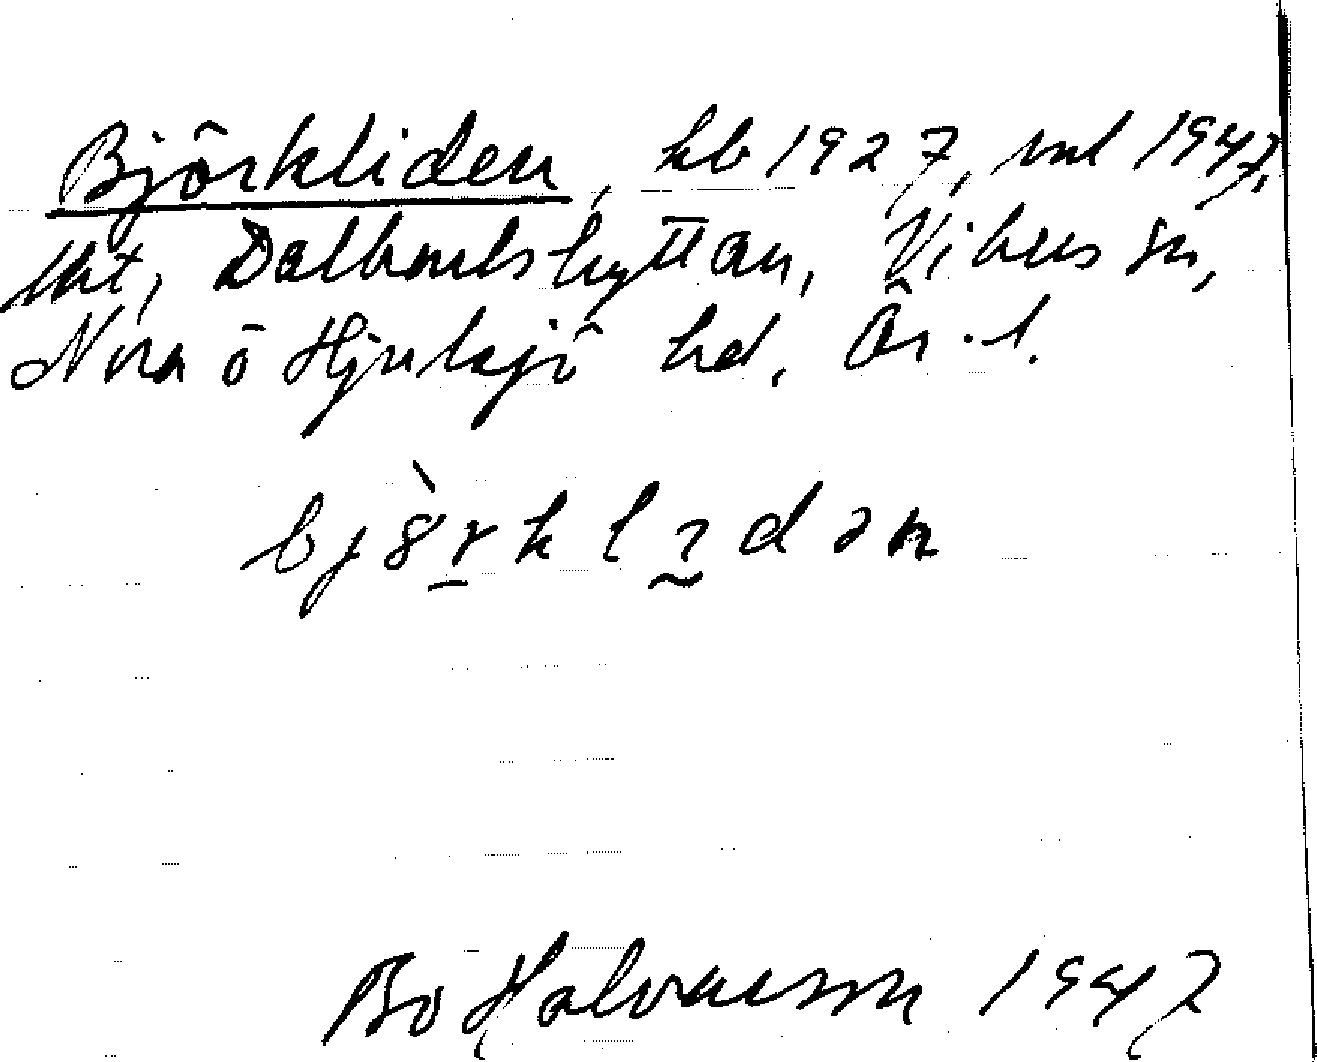 Björkliden, kb 1927, ml 1947,
lht, Dalkarlshyttan, Vikers sn,
Nora o Hjulsjö hd, Ör. l.
bjö̀rklidən
Bo Halvarson 1947